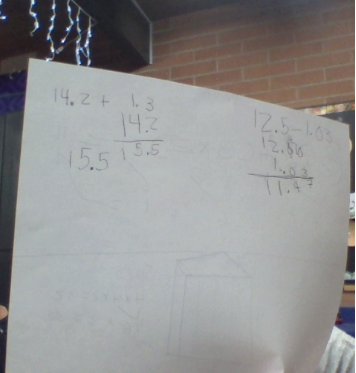 14.2 + 1.3
14.2
15.5 15.5
12.5 - 1.03
12.50
1.03
11.47